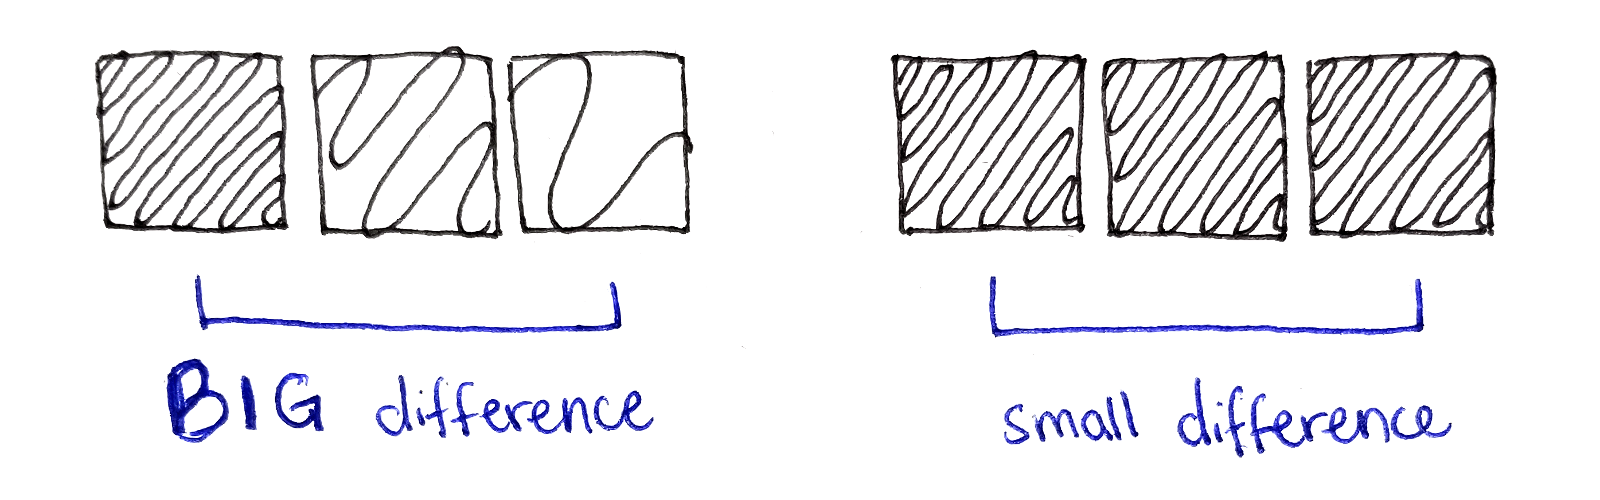 BIG difference
small difference